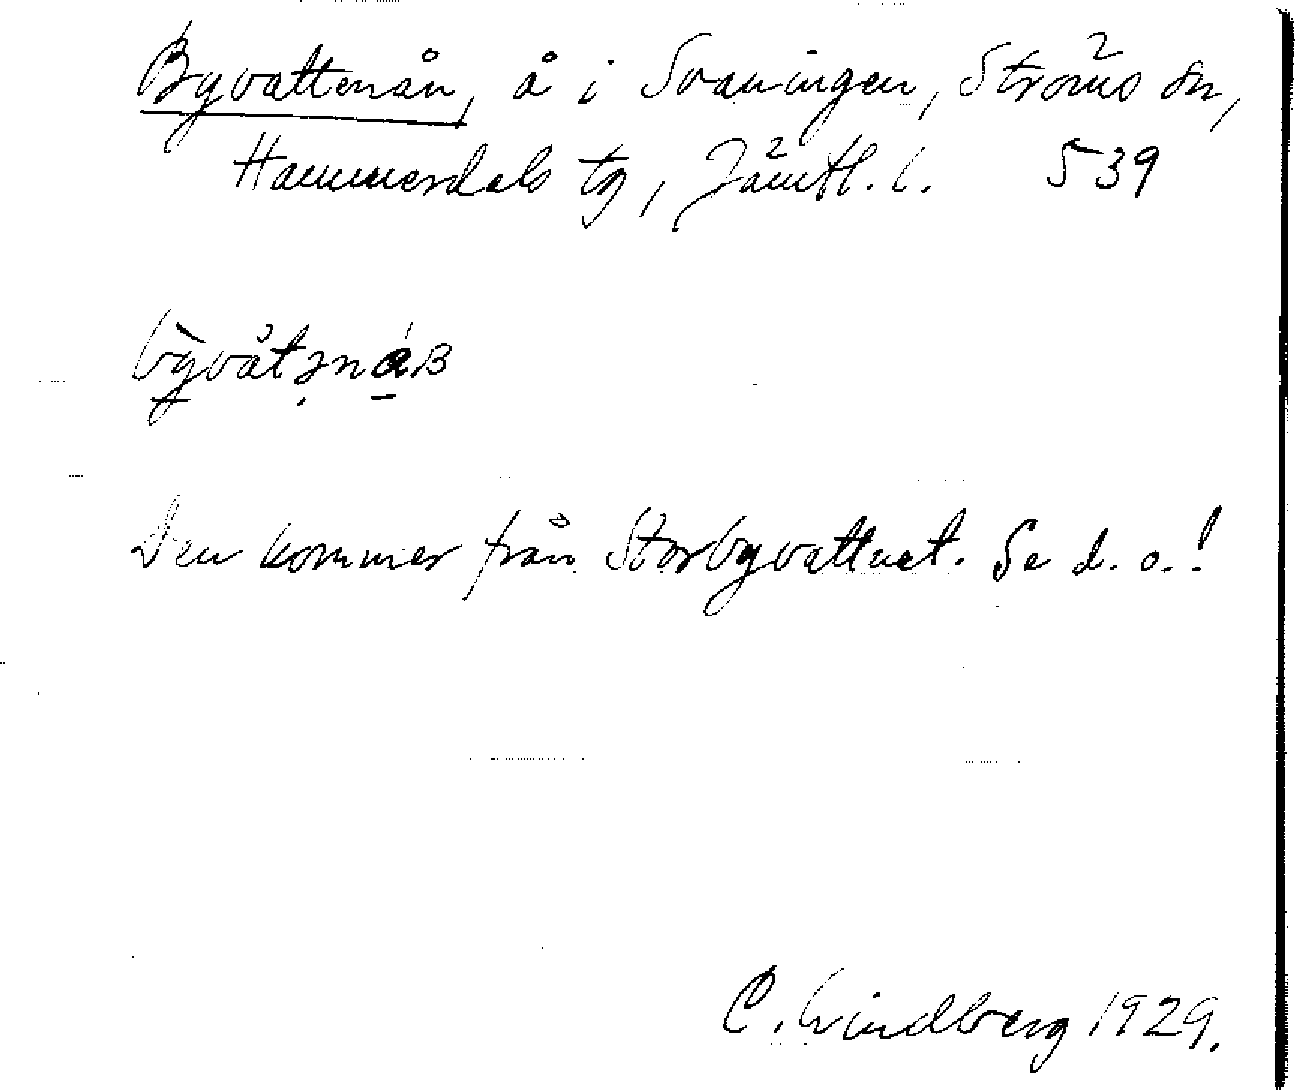 Byvattenån, å i Svaningen, Ströms sn,
Hammerdals tg, Jämtl. l. 539
Den kommer från Storbyvattnet. Se d. o.!
C. Lindberg 1929.